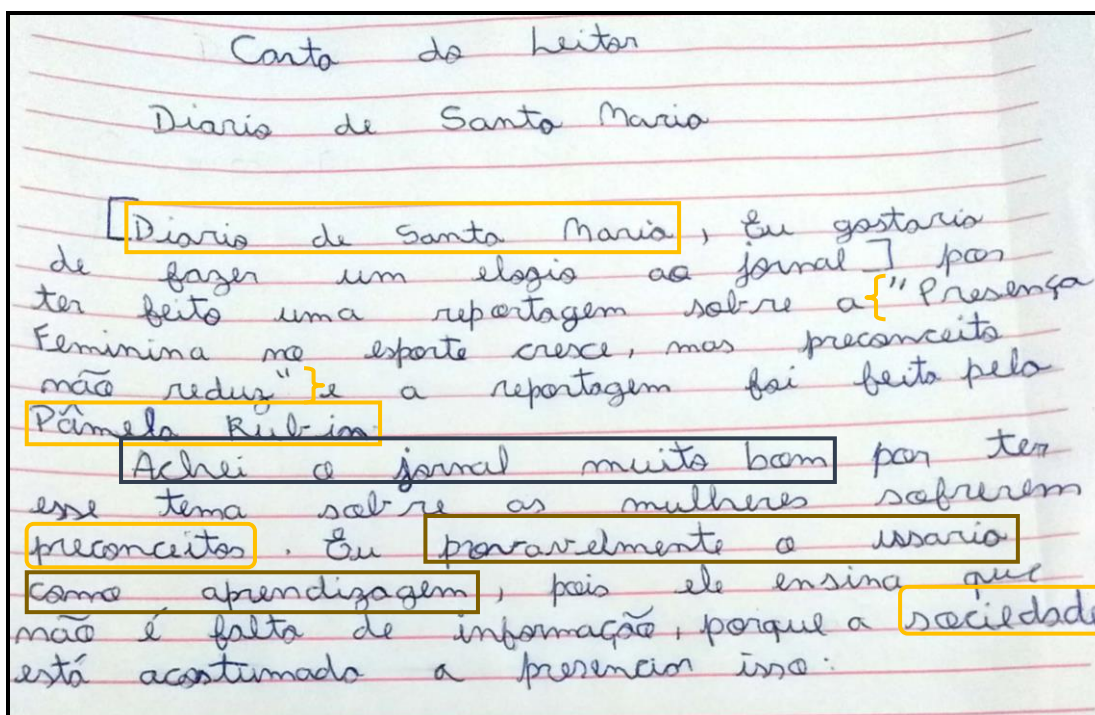 Carta do Leitor
Diario de Santa Maria
[Diario de Santa Maria, Eu gostaria
de fazer um elogio ao jornal] por
ter feito uma reportagem sobre a {"Presença
Feminina no esporte cresce, mas preconceito
não reduz"} e a reportagem foi feita pela
Pâmela Rubin.
Achei o jornal muito bom por ter
esse tema sobre as mulheres sofrerem
preconceitos. Eu provavelmente o ussaria
como aprendizagem, pois ele ensina que
não é falta de informação, porque a sociedade
está acostumada a presenciar isso.